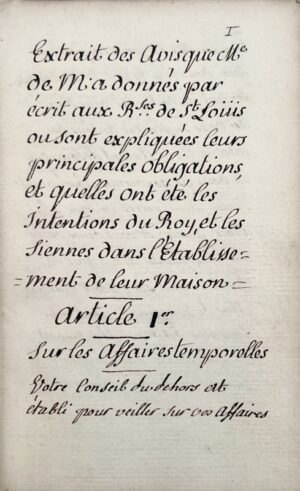 I
Extrait des Avis que Me
de M. a donnés par
écrit aux Rses de St Loüis
ou sont expliquées leurs
principales obligations,
et quelles ont été les
Intentions du Roy, et les
siennes dans l'Etablisse=
=ment de leur Maison=
Article 1er
Sur les Affaires temporelles
Votre Conseil du dehors est
établi pour veiller sur vos affaires